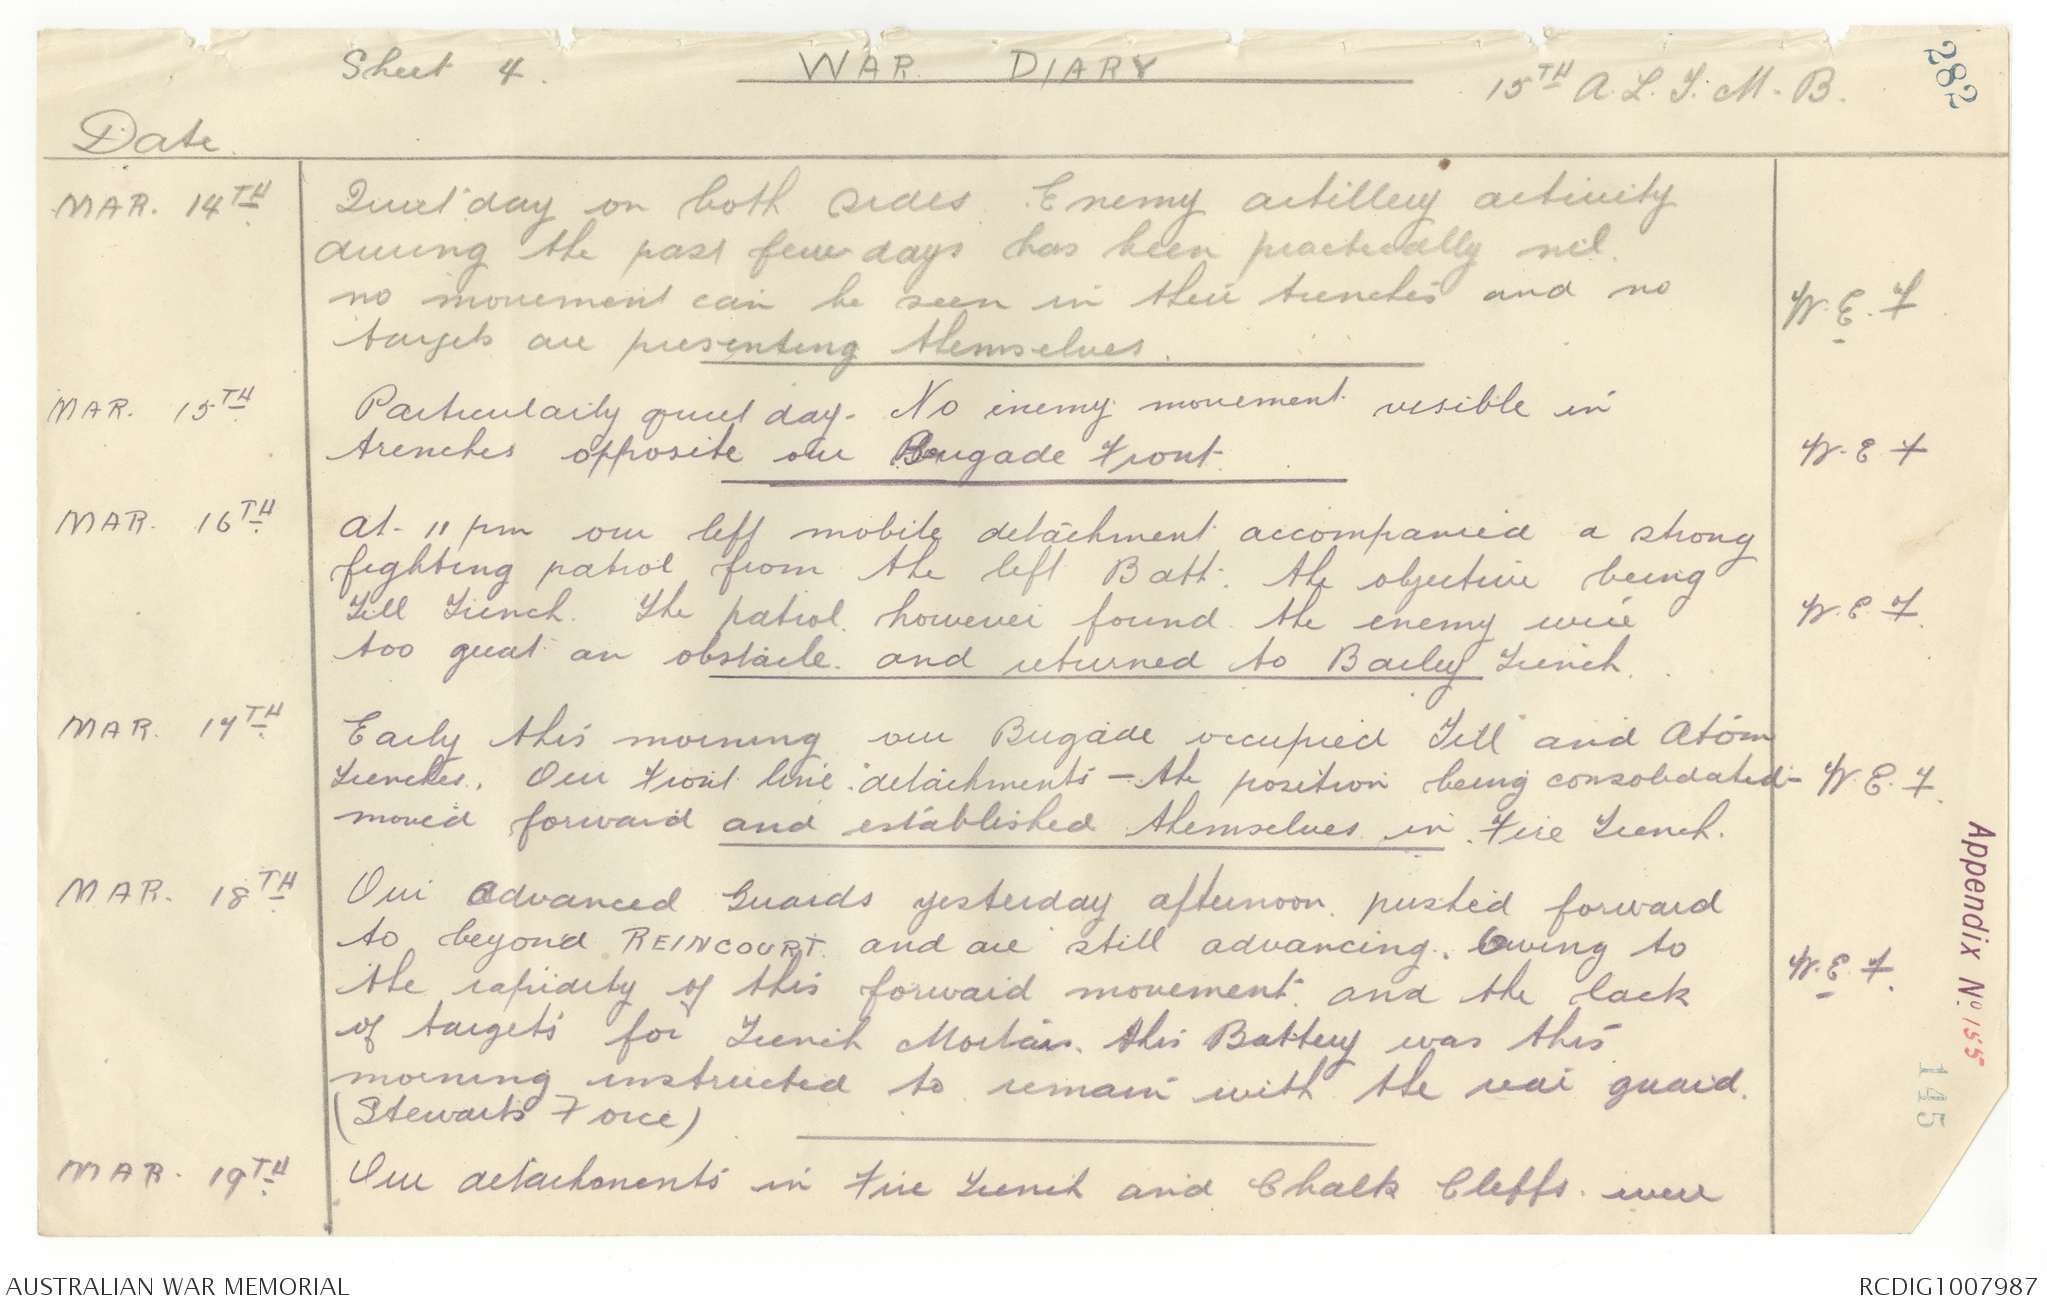 Sheet 4.
WAR DIARY
15TH A. L. T. M. B.
282
Date
MAR. 14TH
Quiet day on both sides. Enemy artillery activity
during the past few days has been practically nil.
no movement can be seen in their trenches and no
targets are presenting themselves.
W. E. F
MAR. 15TH
Particularily quiet day. No enemy movement visible in
trenches opposite our Brigade Front.
W. E F
MAR. 16TH
At 11 pm our left mobile detachment accompanied a strong
fighting patrol from the left Batt. the objective being
Till Trench. The patrol however found the enemy wire
too great an obstacle. and returned to Bailey Trench.
W. E. F.
MAR. 17TH
Early this morning our Brigade occupied Till and Atom
Trenches. Our Front line detachments – the position being consolidated –
moved forward and established themselves in Fire Trench.
W. E. F.
MAR. 18TH
Our Advanced Guards yesterday afternoon pushed forward
to beyond REINCOURT and are still advancing. Owing to
the rapidity of this forward movement and the lack
of targets for Trench Mortars. this Battery was this
morning instructed to remain with the rear guard.
(Stewarts Force)
W. E. F.
MAR. 19TH
Our detachments in Fire Trench and Chalk Cliffs. were
Appendix No. 155
145
AUSTRALIAN WAR MEMORIAL
RCDIG1007987